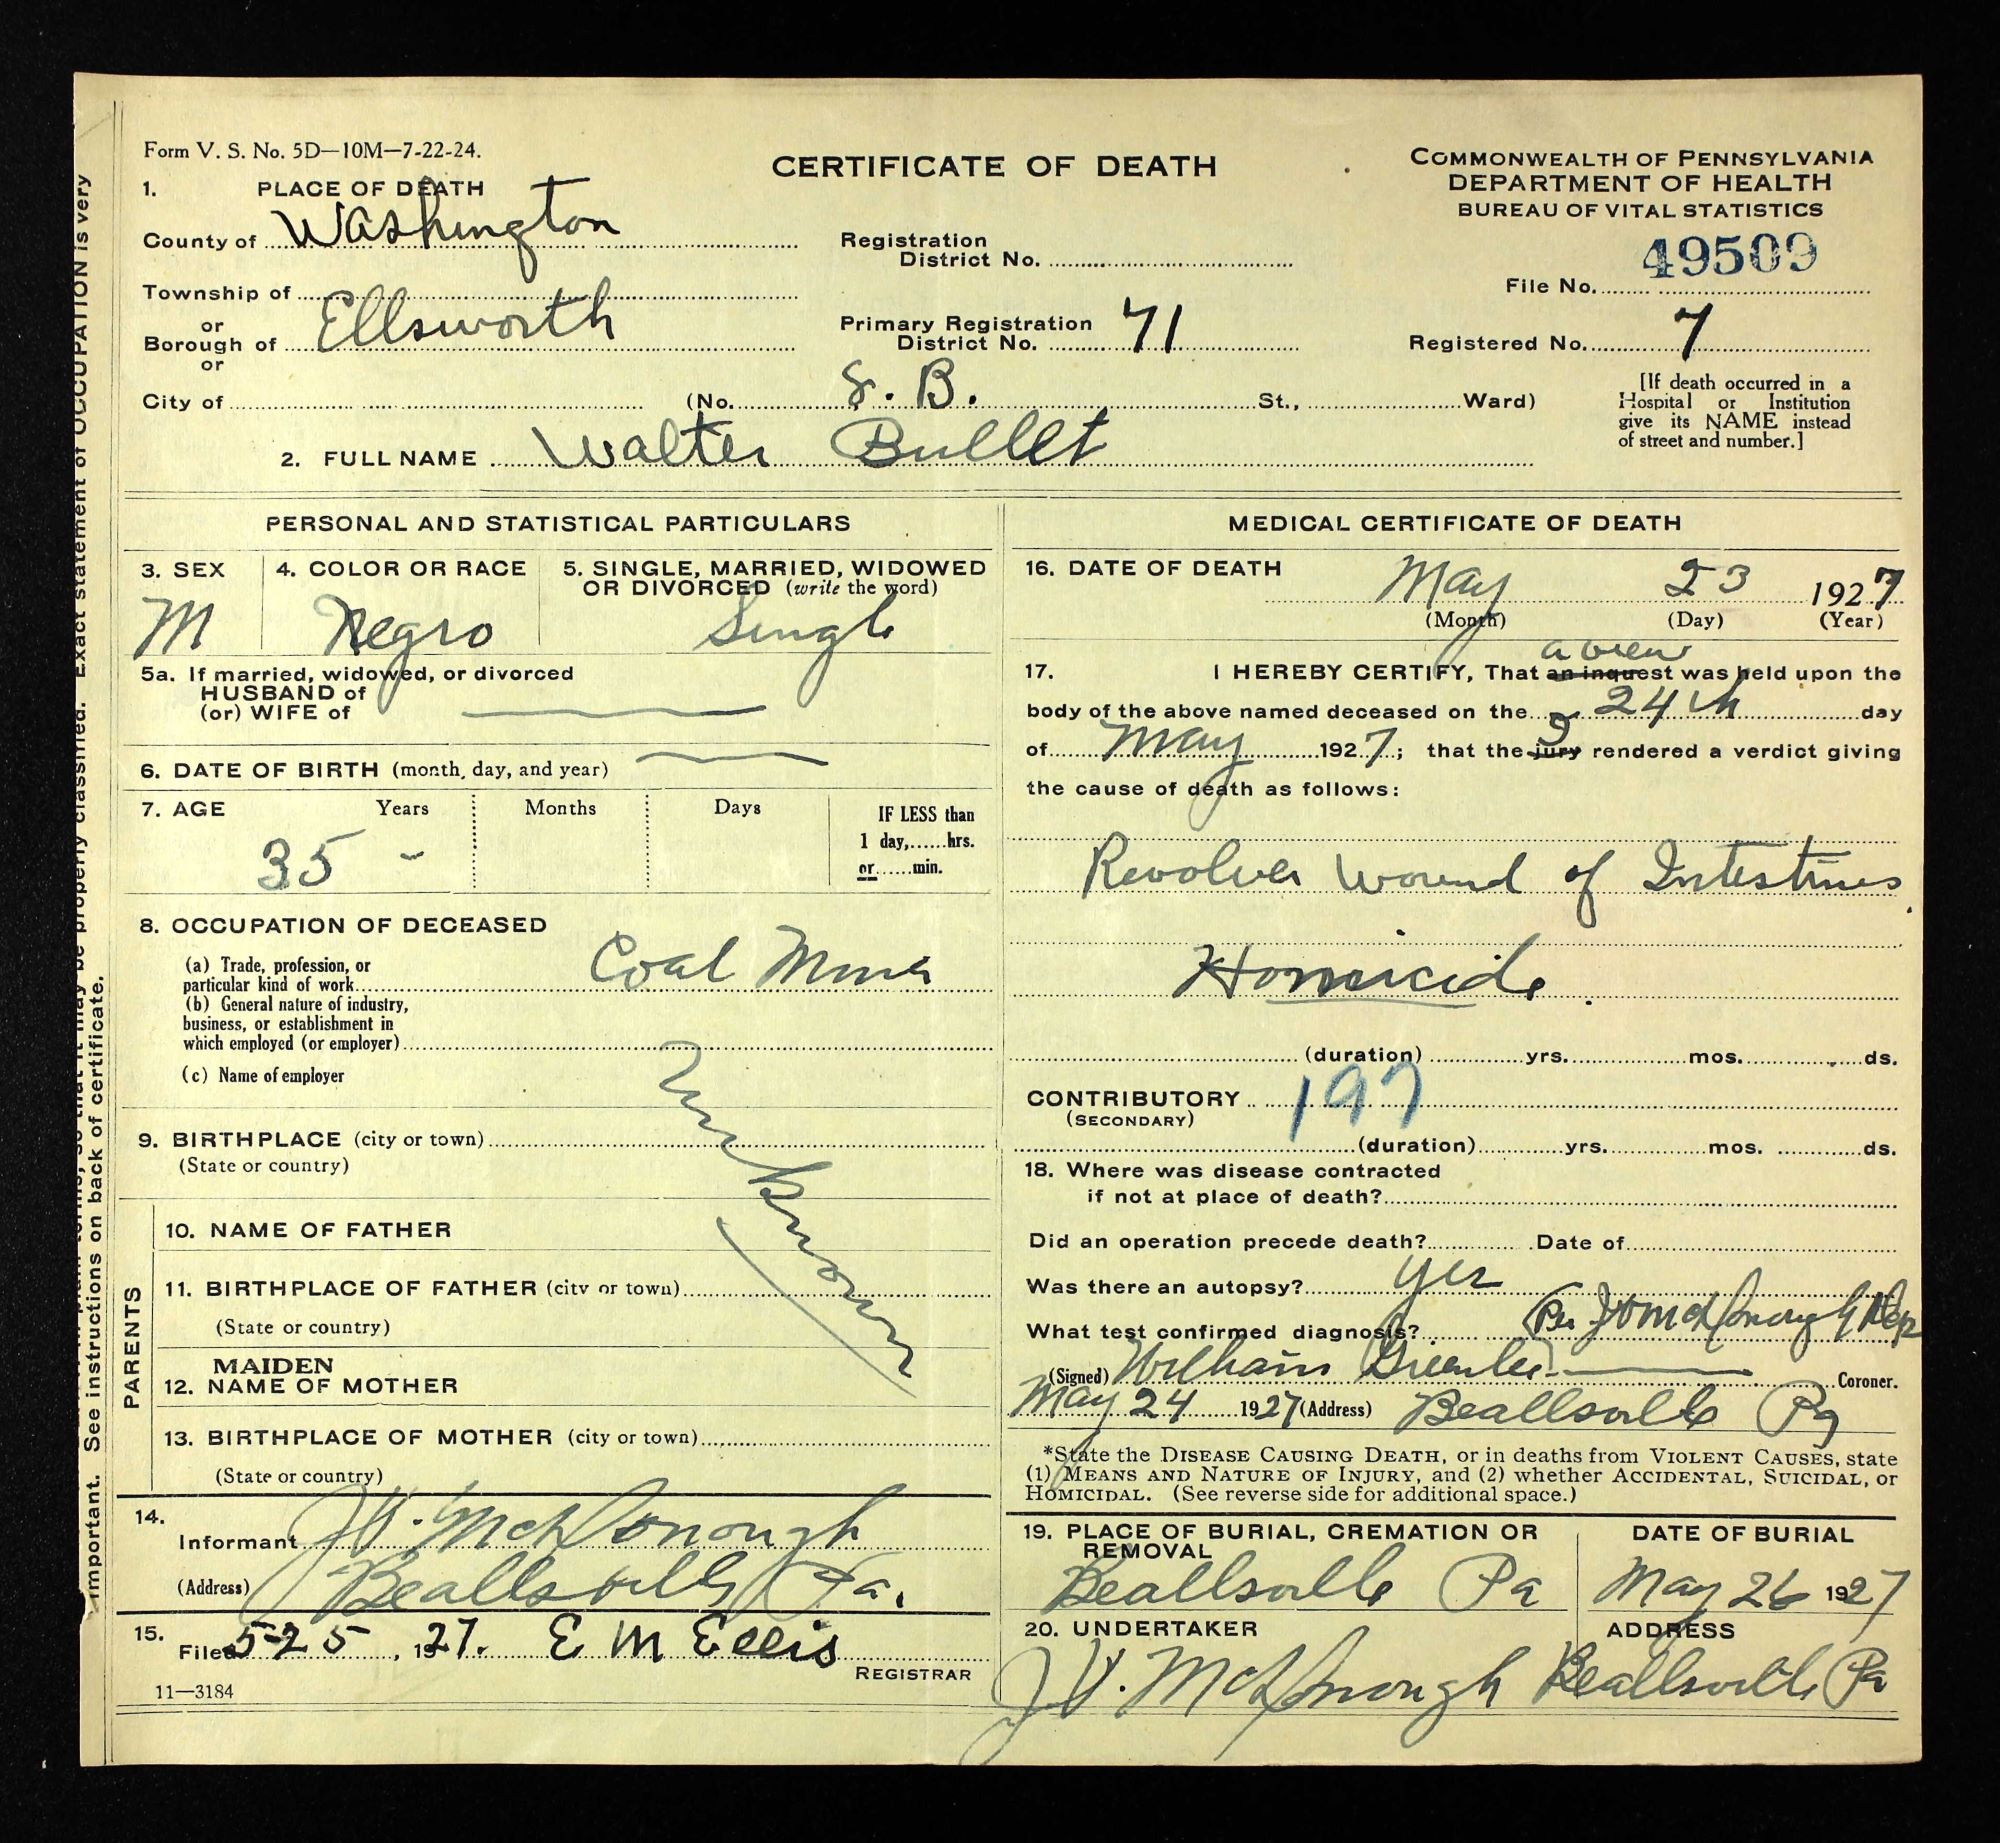 Form V. S. No. 5D—10M—7-22-24.
CERTIFICATE OF DEATH
COMMONWEALTH OF PENNSYLVANIA
DEPARTMENT OF HEALTH
BUREAU OF VITAL STATISTICS
1. PLACE OF DEATH
County of Washington
Registration District No.
File No. 49509
Township of
or
Borough of Ellsworth
Primary Registration District No. 71
Registered No. 7
or
City of (No. S. B. St., Ward)
[If death occurred in a
Hospital or Institution
give its NAME instead
of street and number.]
2. FULL NAME Walter Bullet
PERSONAL AND STATISTICAL PARTICULARS
3. SEX M
4. COLOR OR RACE Negro
5. SINGLE, MARRIED, WIDOWED
OR DIVORCED (write the word)
Single
5a. If married, widowed, or divorced
HUSBAND of
(or) WIFE of
6. DATE OF BIRTH (month, day, and year)
7. AGE Years Months Days
35 -
IF LESS than
1 day,......hrs.
or......min.
8. OCCUPATION OF DECEASED
(a) Trade, profession, or
particular kind of work Coal Miner
(b) General nature of industry,
business, or establishment in
which employed (or employer)
(c) Name of employer
Unknown
9. BIRTHPLACE (city or town)
(State or country)
PARENTS
10. NAME OF FATHER
11. BIRTHPLACE OF FATHER (city or town)
(State or country)
12. MAIDEN NAME OF MOTHER
13. BIRTHPLACE OF MOTHER (city or town)
(State or country)
14. Informant J.V. McDonough
(Address) Beallsville Pa.
15. Filed 5-25, 1927. E M Ellis
REGISTRAR
11—3184
MEDICAL CERTIFICATE OF DEATH
16. DATE OF DEATH May 23 1927
(Month) (Day) (Year)
a view
17. I HEREBY CERTIFY, That an inquest was held upon the
body of the above named deceased on the 24th day
of May 1927; that the jury I rendered a verdict giving
the cause of death as follows:
Revolver Wound of Intestines
Homicide.
(duration) yrs. mos. ds.
CONTRIBUTORY 197
(SECONDARY)
(duration) yrs. mos. ds.
18. Where was disease contracted
if not at place of death?
Did an operation precede death? Date of
Was there an autopsy? yes
What test confirmed diagnosis? Per J V McDonough Dep
(Signed) William Greenlee Coroner.
May 24 1927 (Address) Beallsville Pa
*State the DISEASE CAUSING DEATH, or in deaths from VIOLENT CAUSES, state
(1) MEANS AND NATURE OF INJURY, and (2) whether ACCIDENTAL, SUICIDAL, or
HOMICIDAL. (See reverse side for additional space.)
19. PLACE OF BURIAL, CREMATION OR
REMOVAL
Beallsville Pa
DATE OF BURIAL
May 26 1927
20. UNDERTAKER
J.V. McDonough
ADDRESS
Beallsville Pa
so that it may be properly classified. Exact statement of OCCUPATION is very
important. See instructions on back of certificate.